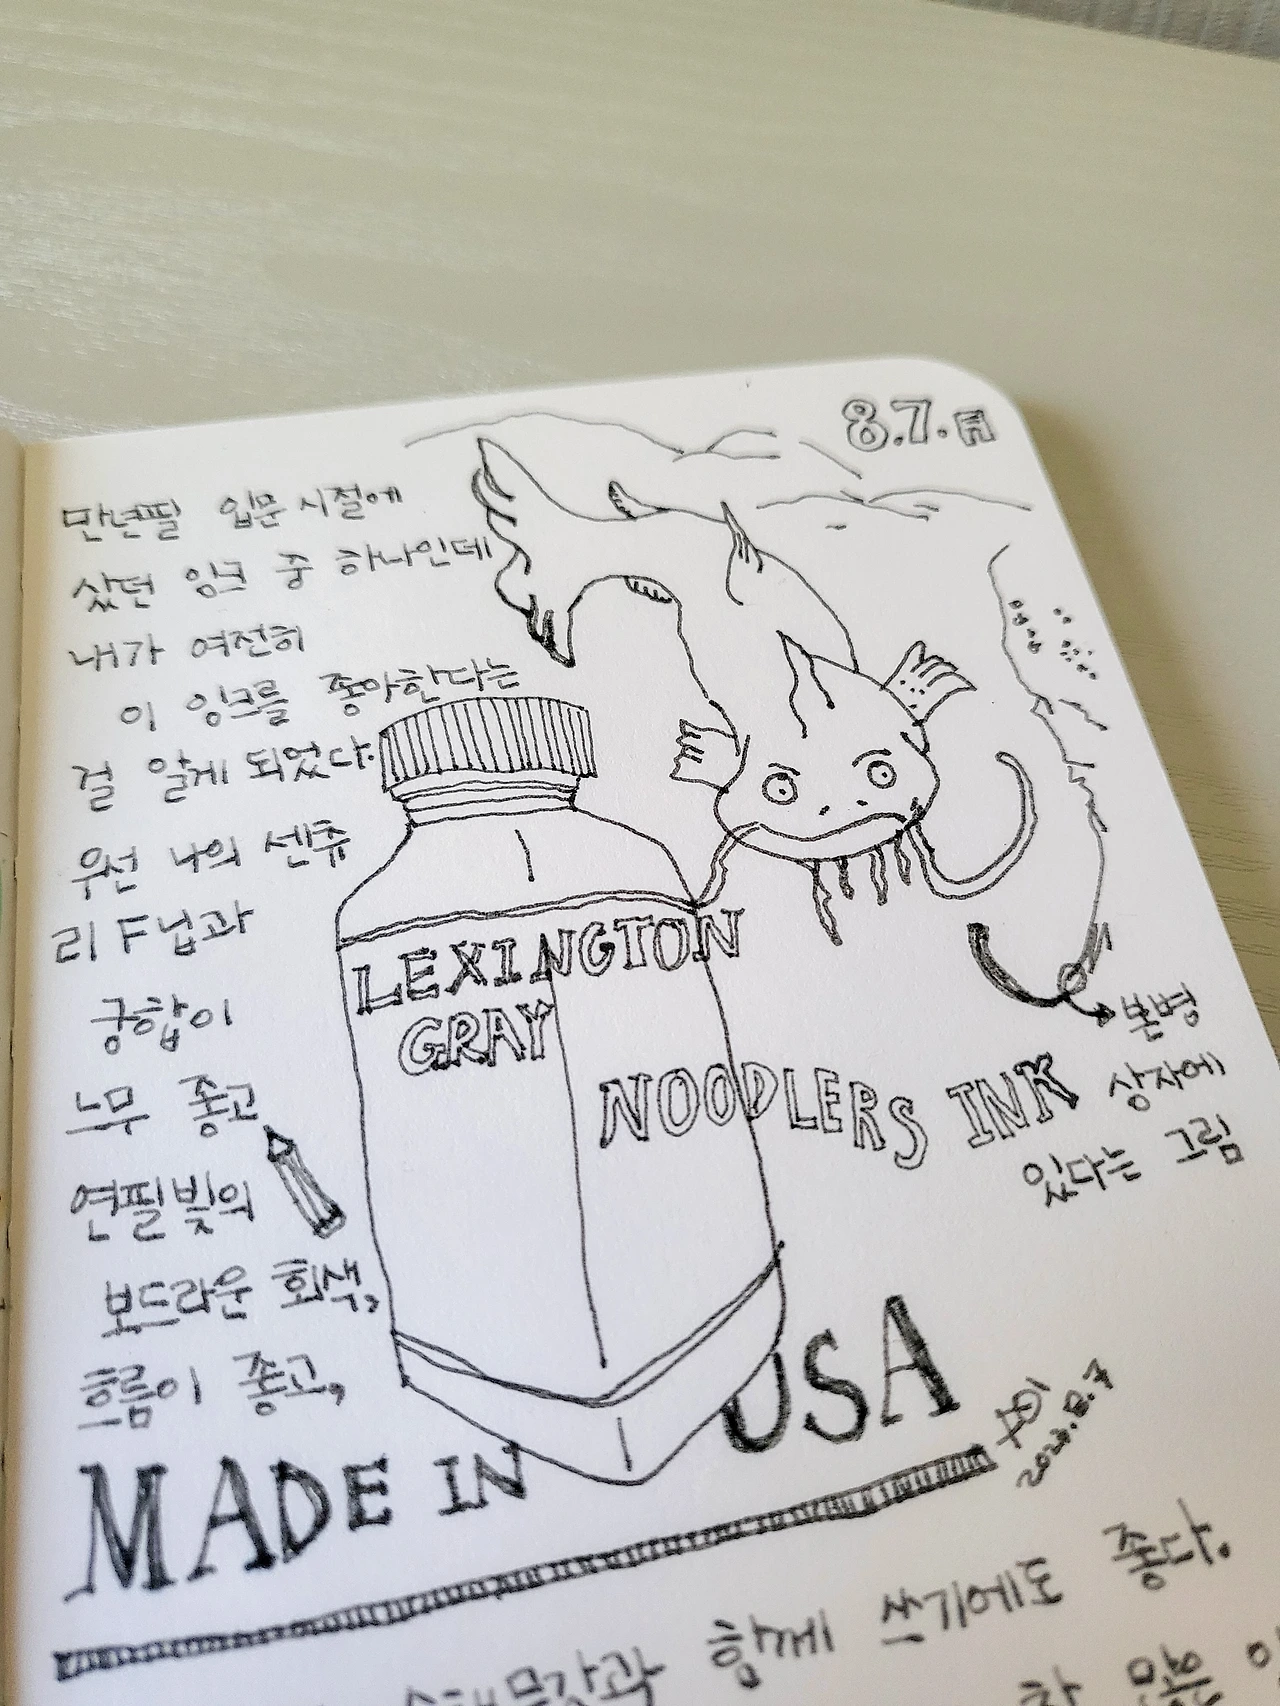 8.7.月
만년필 입문 시절에
샀던 잉크 중 하나인데
내가 여전히
이 잉크를 좋아한다는
걸 알게 되었다.
우선 나의 센츄
리 F닙과
궁합이
너무 좋고
연필빛의
보드라운 회색,
흐름이 좋고,
LEXINGTON
GRAY
NOODLERS INK
본병
상자에
있다는 그림
MADE IN USA
8.7
함께 쓰기에도 좋다.